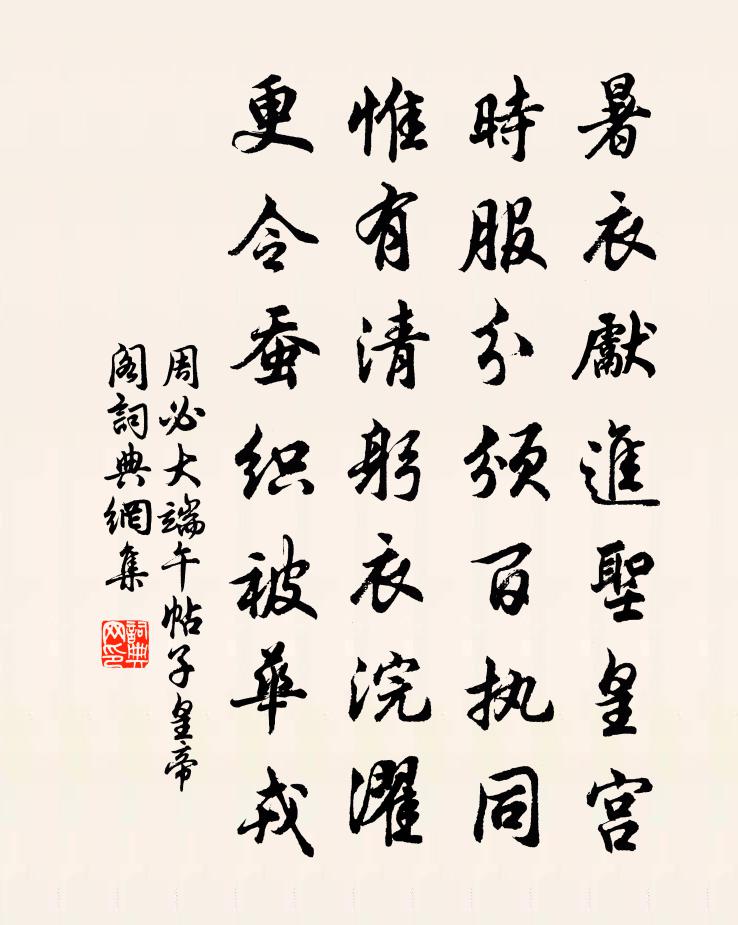 暑衣獻進聖皇宫
時服分頒百执同
惟有清躬衣浣濯
更令蚕织被華戎
周必大端午帖子皇帝
阁詞典網集
詞典
网印